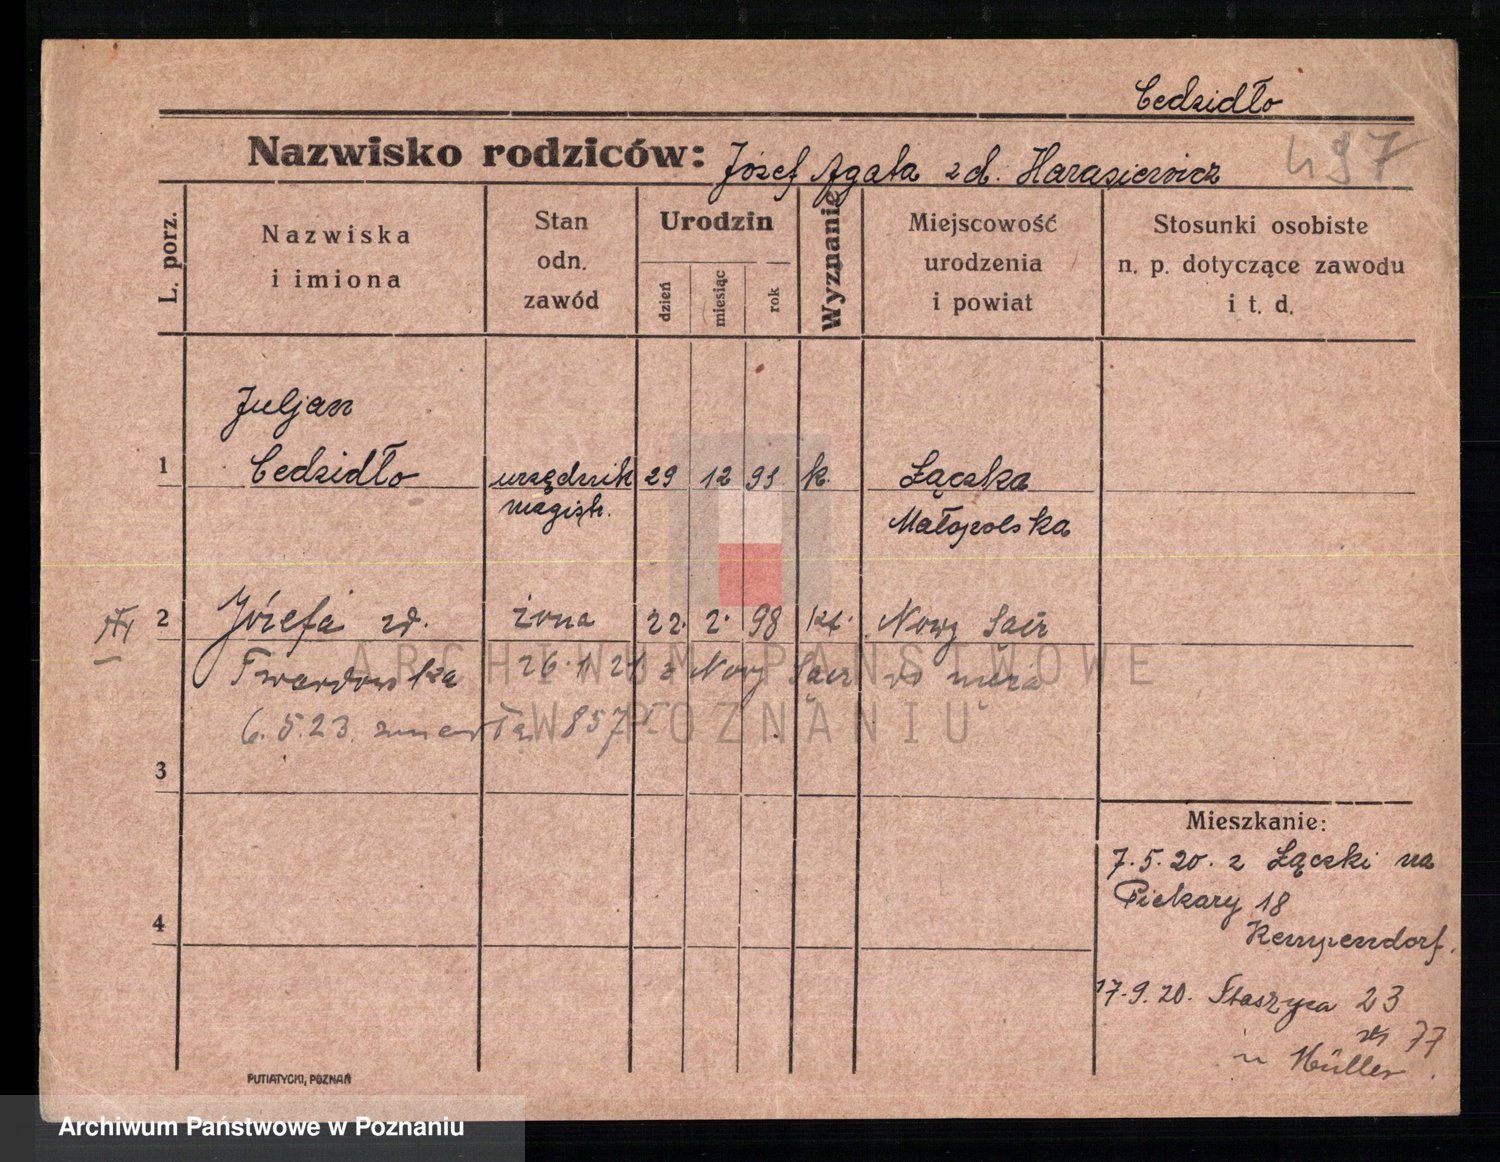 Cedzidło
Nazwisko rodziców: Józef Agata zd. Harasiewicz 497
L. porz.
Nazwiska
i imiona
Stan
odn.
zawód
Urodzin
dzień
miesiąc
rok
Wyznanie
Miejscowość
urodzenia
i powiat
Stosunki osobiste
n. p. dotyczące zawodu
i t. d.
Juljan
1 Cedzidło urzędnik 29 12 93 k. Łączka
magistr. Małopolska
2 Józefa zd. żona 22. 2. 98 kt. Nowy Sącz
Twardowska 26.11.21 z Nowy Sącz do męża
6.5.23. zmarła 857
3
4
Mieszkanie:
7.5.20. z Łączki na
Piekary 18
Kempendorf.
17.9.20. Staszyca 23
77
u Müller.
PUTIATYCKI, POZNAŃ
ARCHIWUM PAŃSTWOWE
W POZNANIU
Archiwum Państwowe w Poznaniu